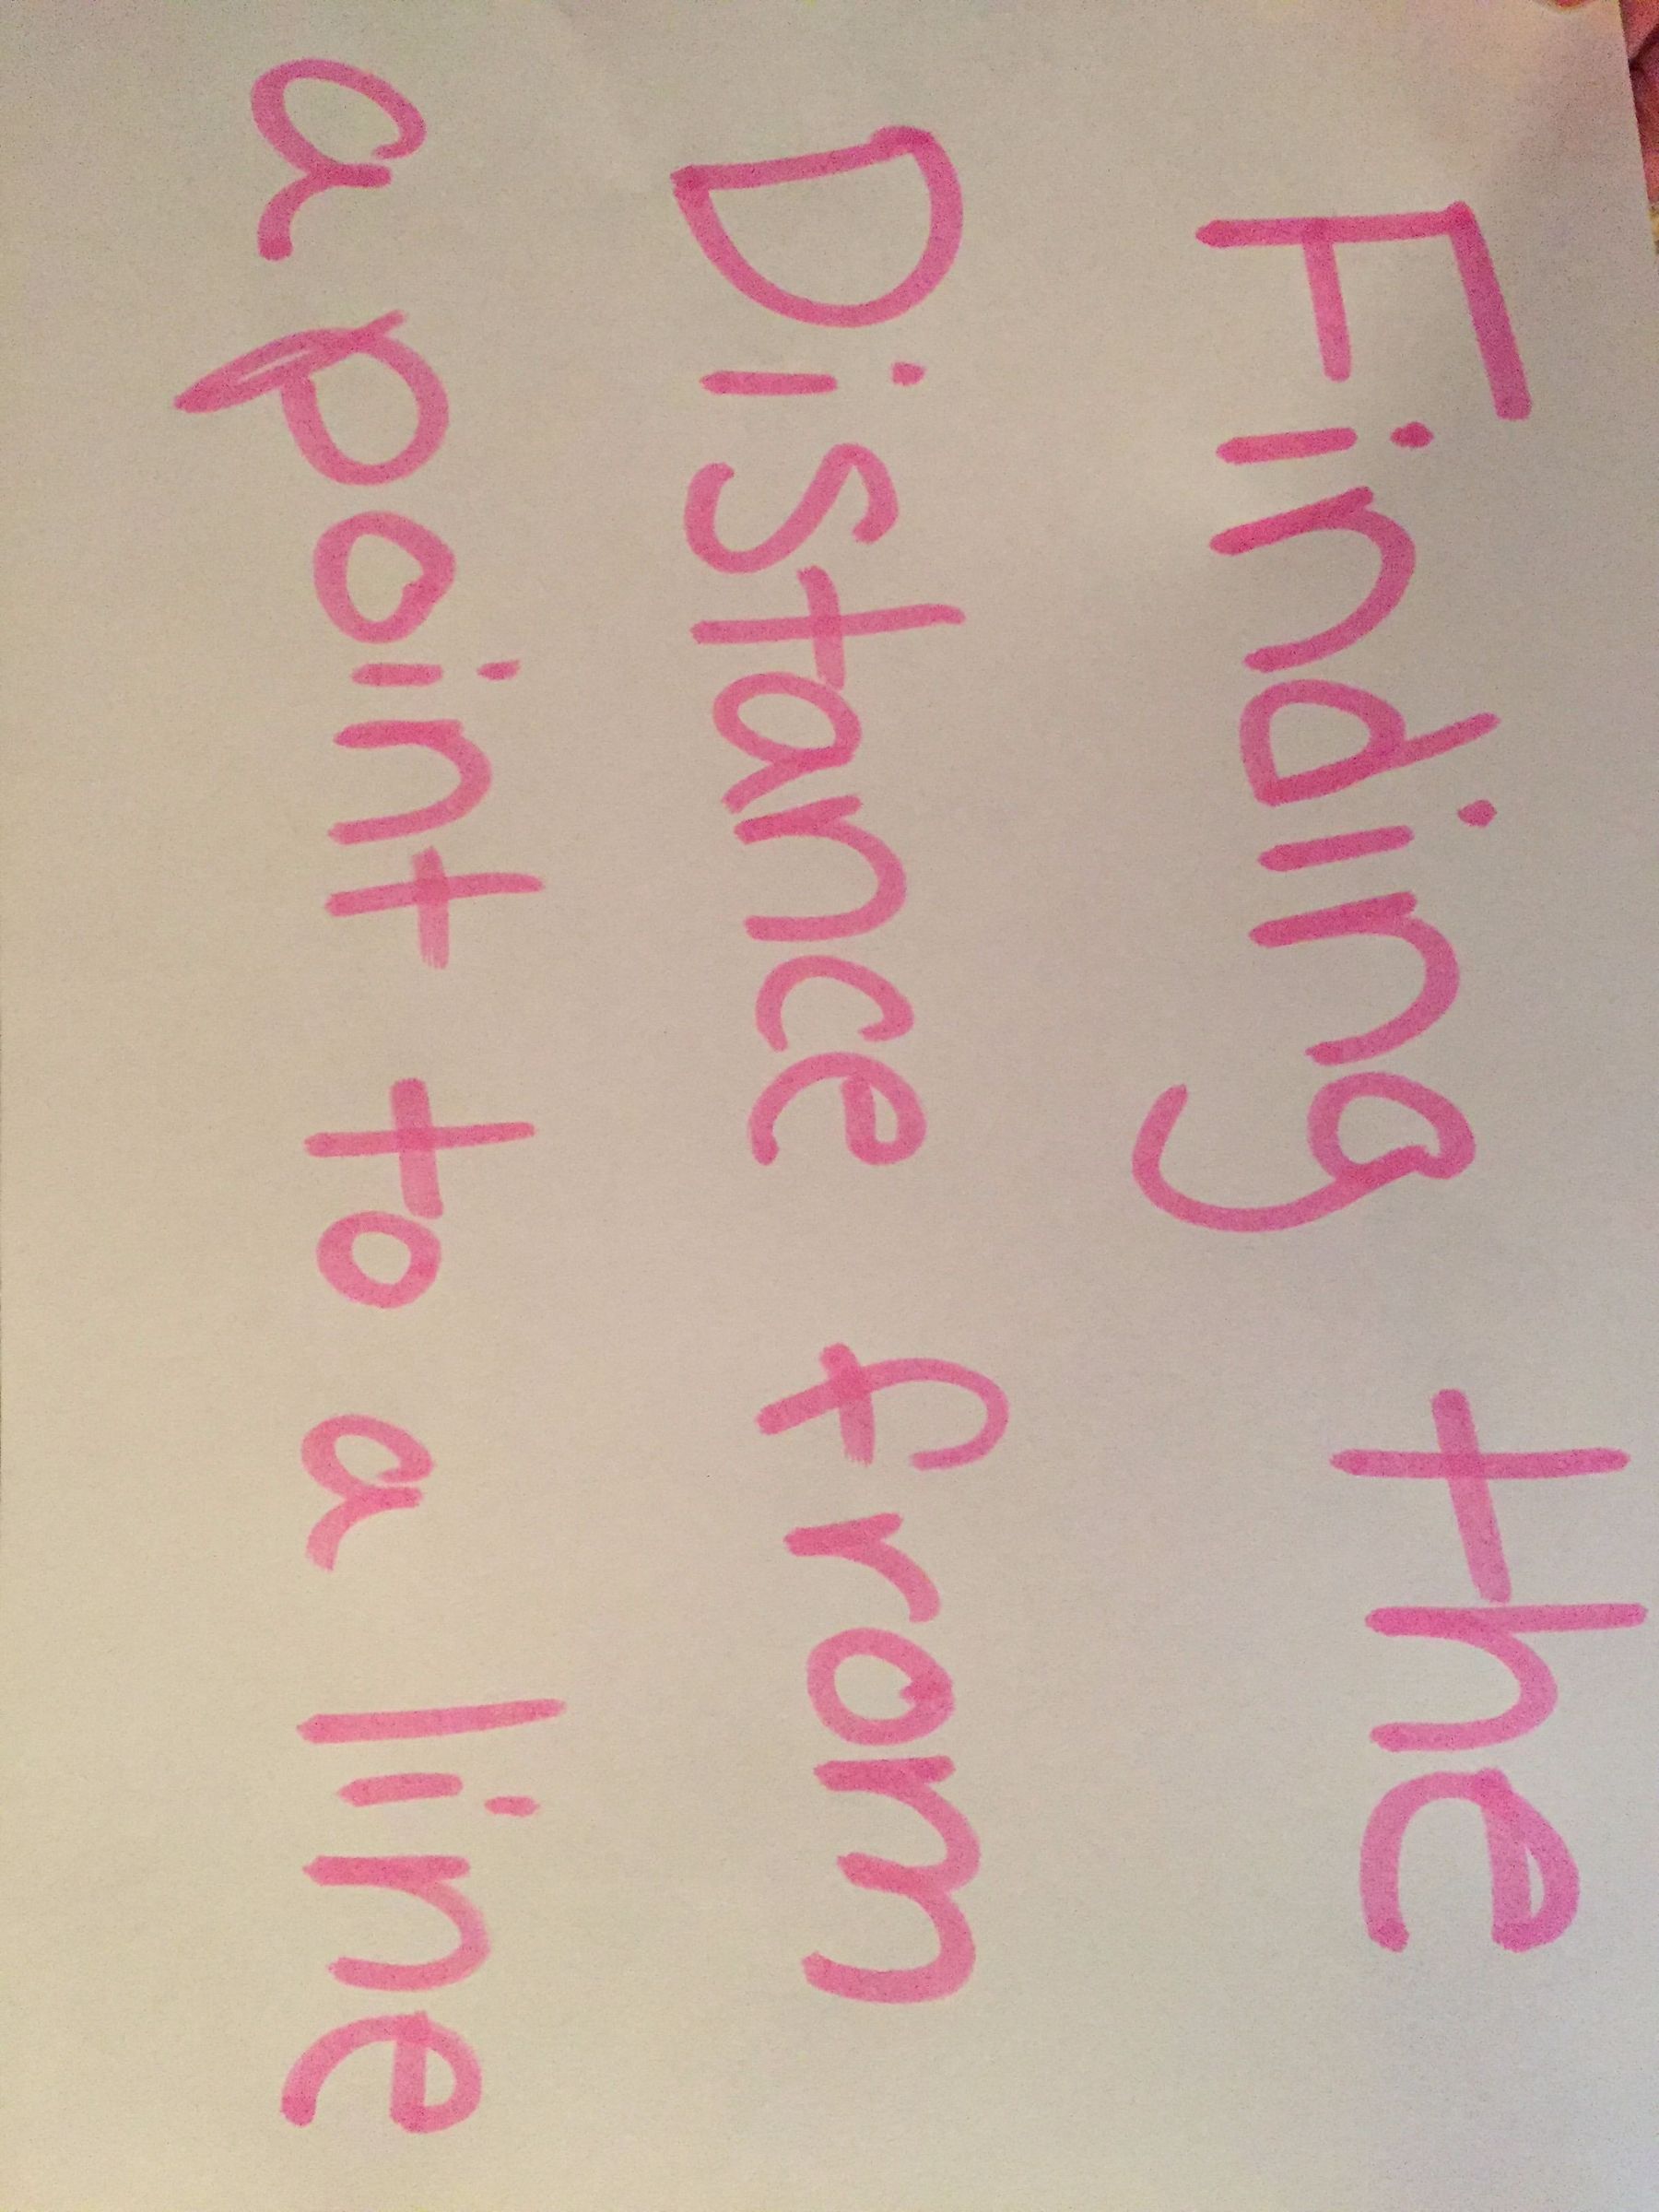 Finding the
Distance from
a point to a line